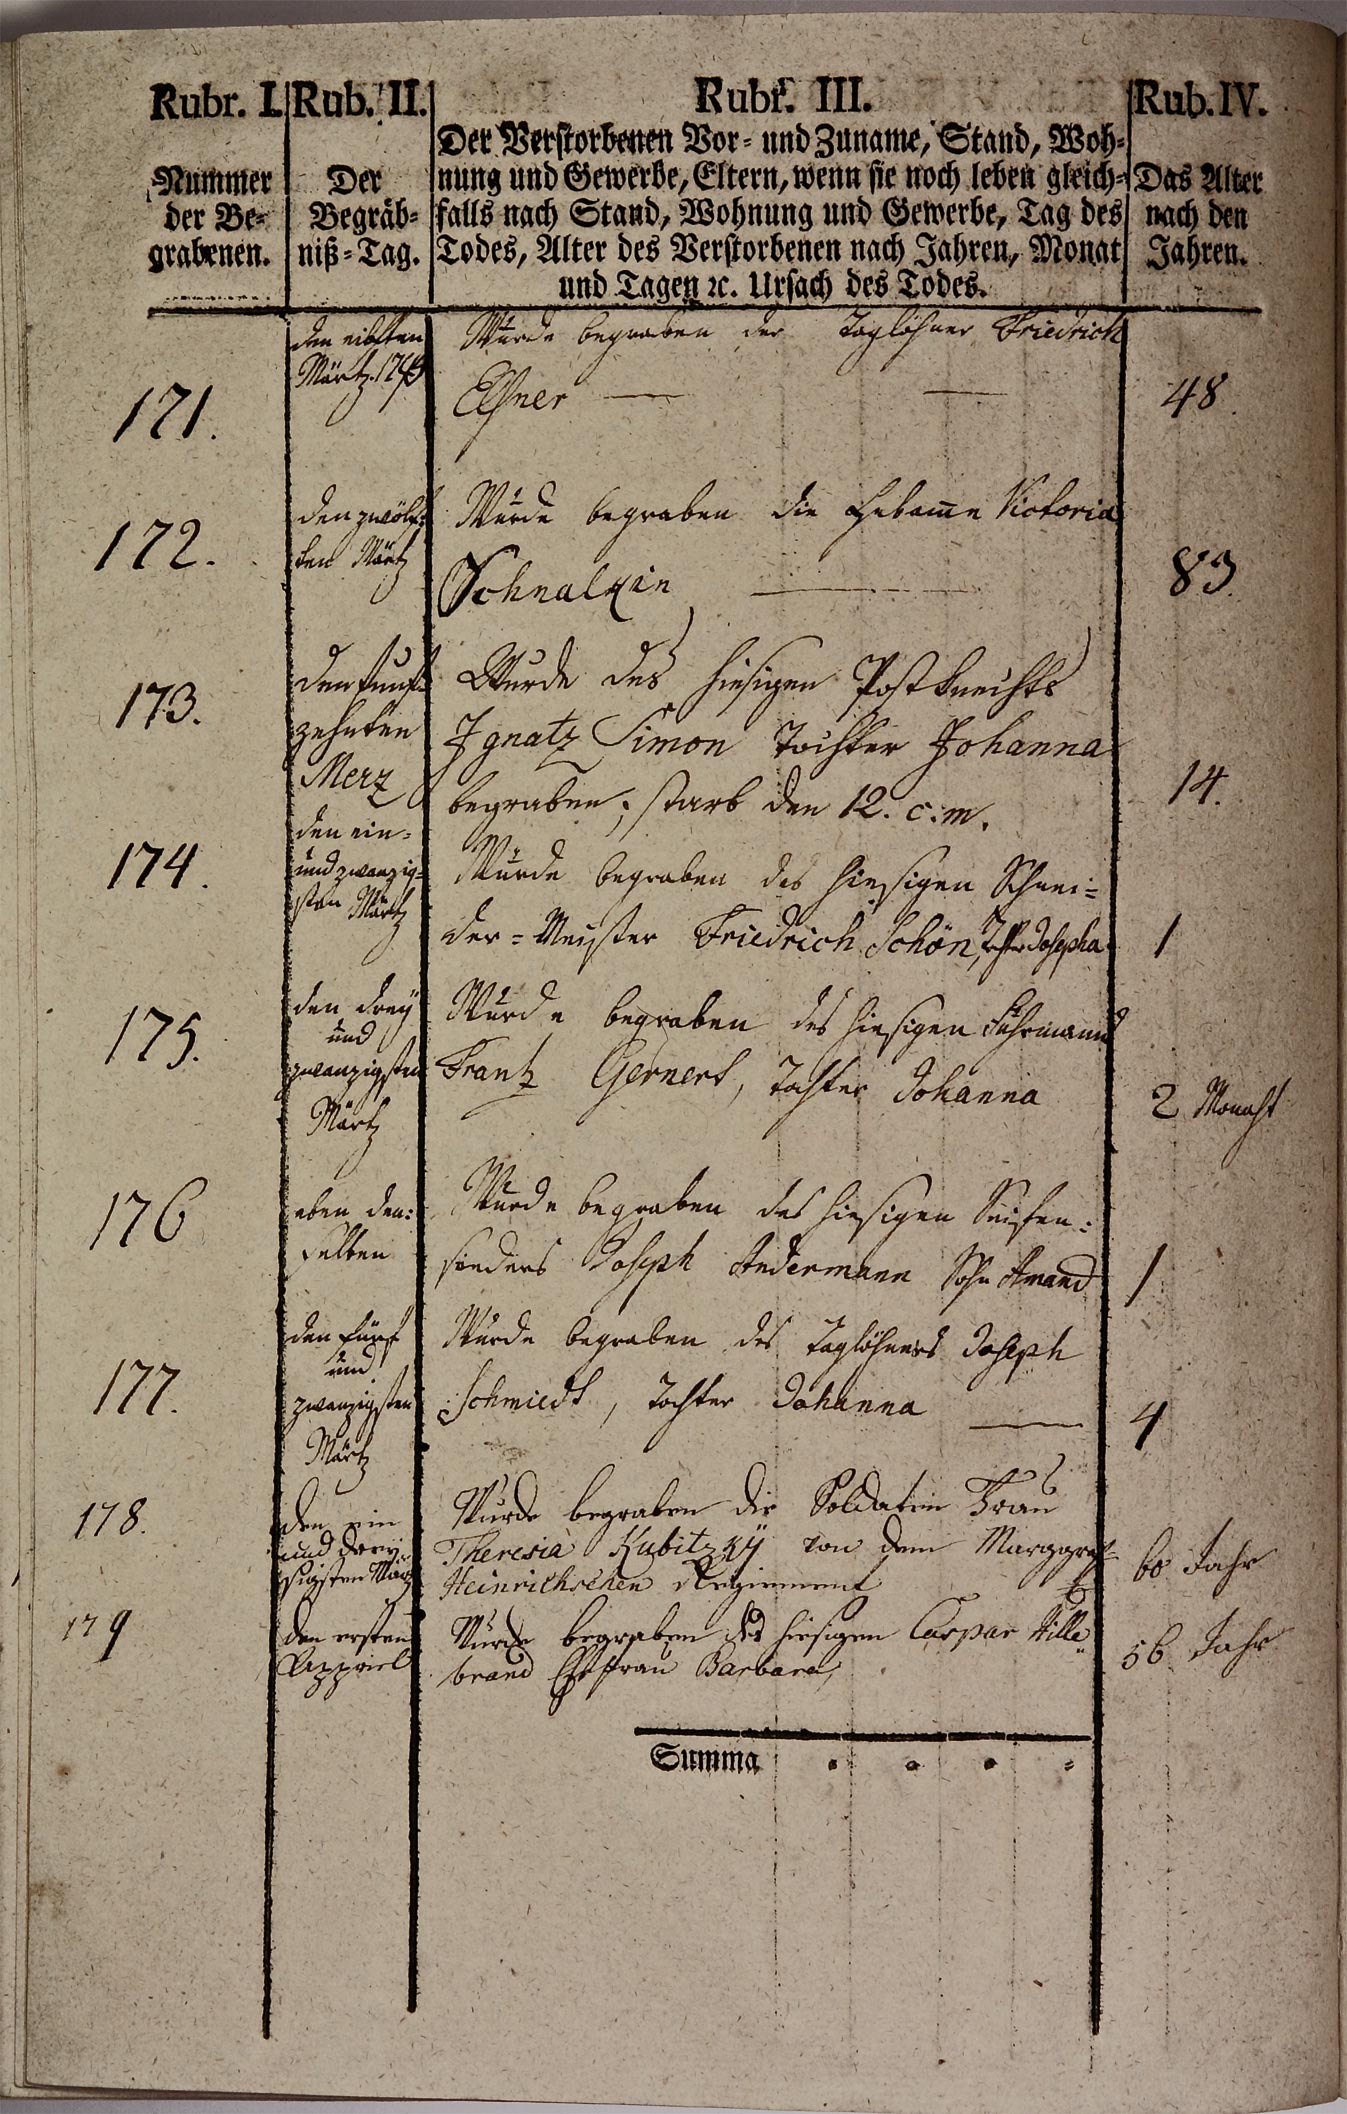 Rubr. I. Rub. II. Rubr. III. Rub. IV.
Nummer der Be=
grabenen.
Der
Begräb=
niß=Tag.
Der Verstorbenen Vor= und Zuname, Stand, Woh=
nung und Gewerbe, Eltern, wenn sie noch leben gleich=
falls nach Stand, Wohnung und Gewerbe, Tag des
Todes, Alter des Verstorbenen nach Jahren, Monat
und Tagen ꝛc. Ursach des Todes.
Das Alter
nach den
Jahren.
171.
den eilften
Märtz
Wurde begraben der Taglöhner Friedrich
Elsner
48
172.
den zwölf=
ten Märtz
Wurde begraben die Hebam̄e Victoria
Schnalkin
83.
173.
den funf=
zehnten
Merz
Wurde des hiesigen Postknechts
Ignatz Simon Tochter Johanna
begraben; starb den 12. c. m.
14.
174.
den ein=
und zwanzig=
sten Märtz
Wurde begraben des hiesigen Schnei=
der=Meister Friedrich Schön, Josepha
1
175.
den dreÿ
und
zwanzigsten
Märtz
Wurde begraben des hiesigen Fuhrmanns
Frantz Gernert, Tochter Johanna
2 Monaht
176
eben den:
selben
Wurde begraben des hiesigen Seifen:
sieders Joseph Andermann Sohn Amand
1
177.
den fünf
und
zwanzigsten
Märtz
Wurde begraben des Taglöhners Joseph
Schmiedt, Tochter Johanna
4
178.
den ein
und dreÿ
sigsten März
Wurde begraben die Soldatin Frau
Theresia Kubitzkÿ von dem Marggraf=
Heinrichschen Regiement
60 Jahr
179
den ersten
Appriel
Wurde begraben des hiesigen Caspar Hille
brand Ehefrau Barbara,
56 Jahr
Summa